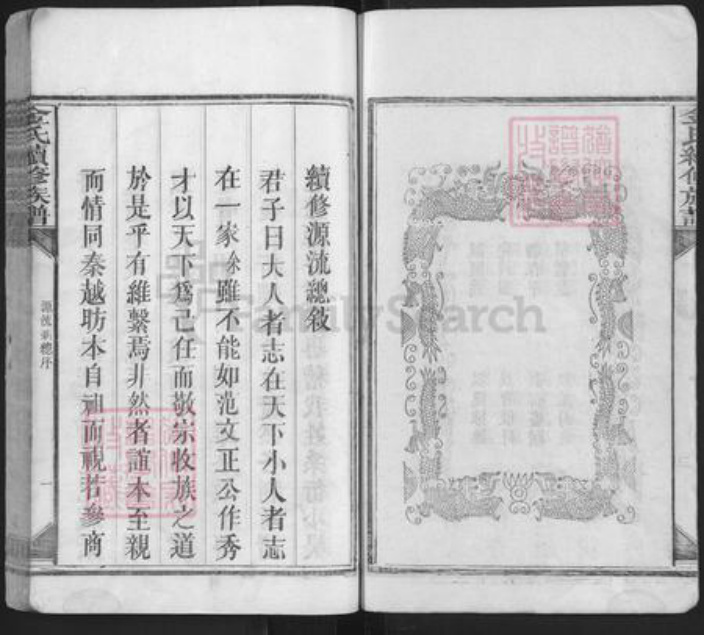 續修源流總敘
君子曰大人者志在天下小人者志
在一家余雖不能如范文正公作秀
才以天下為己任而敬宗收族之道
於是乎有維繫焉非然者誼本至親
而情同秦越昉本自祖而視若參商
金氏續修族譜
一
金氏續修族譜
FamilySearch